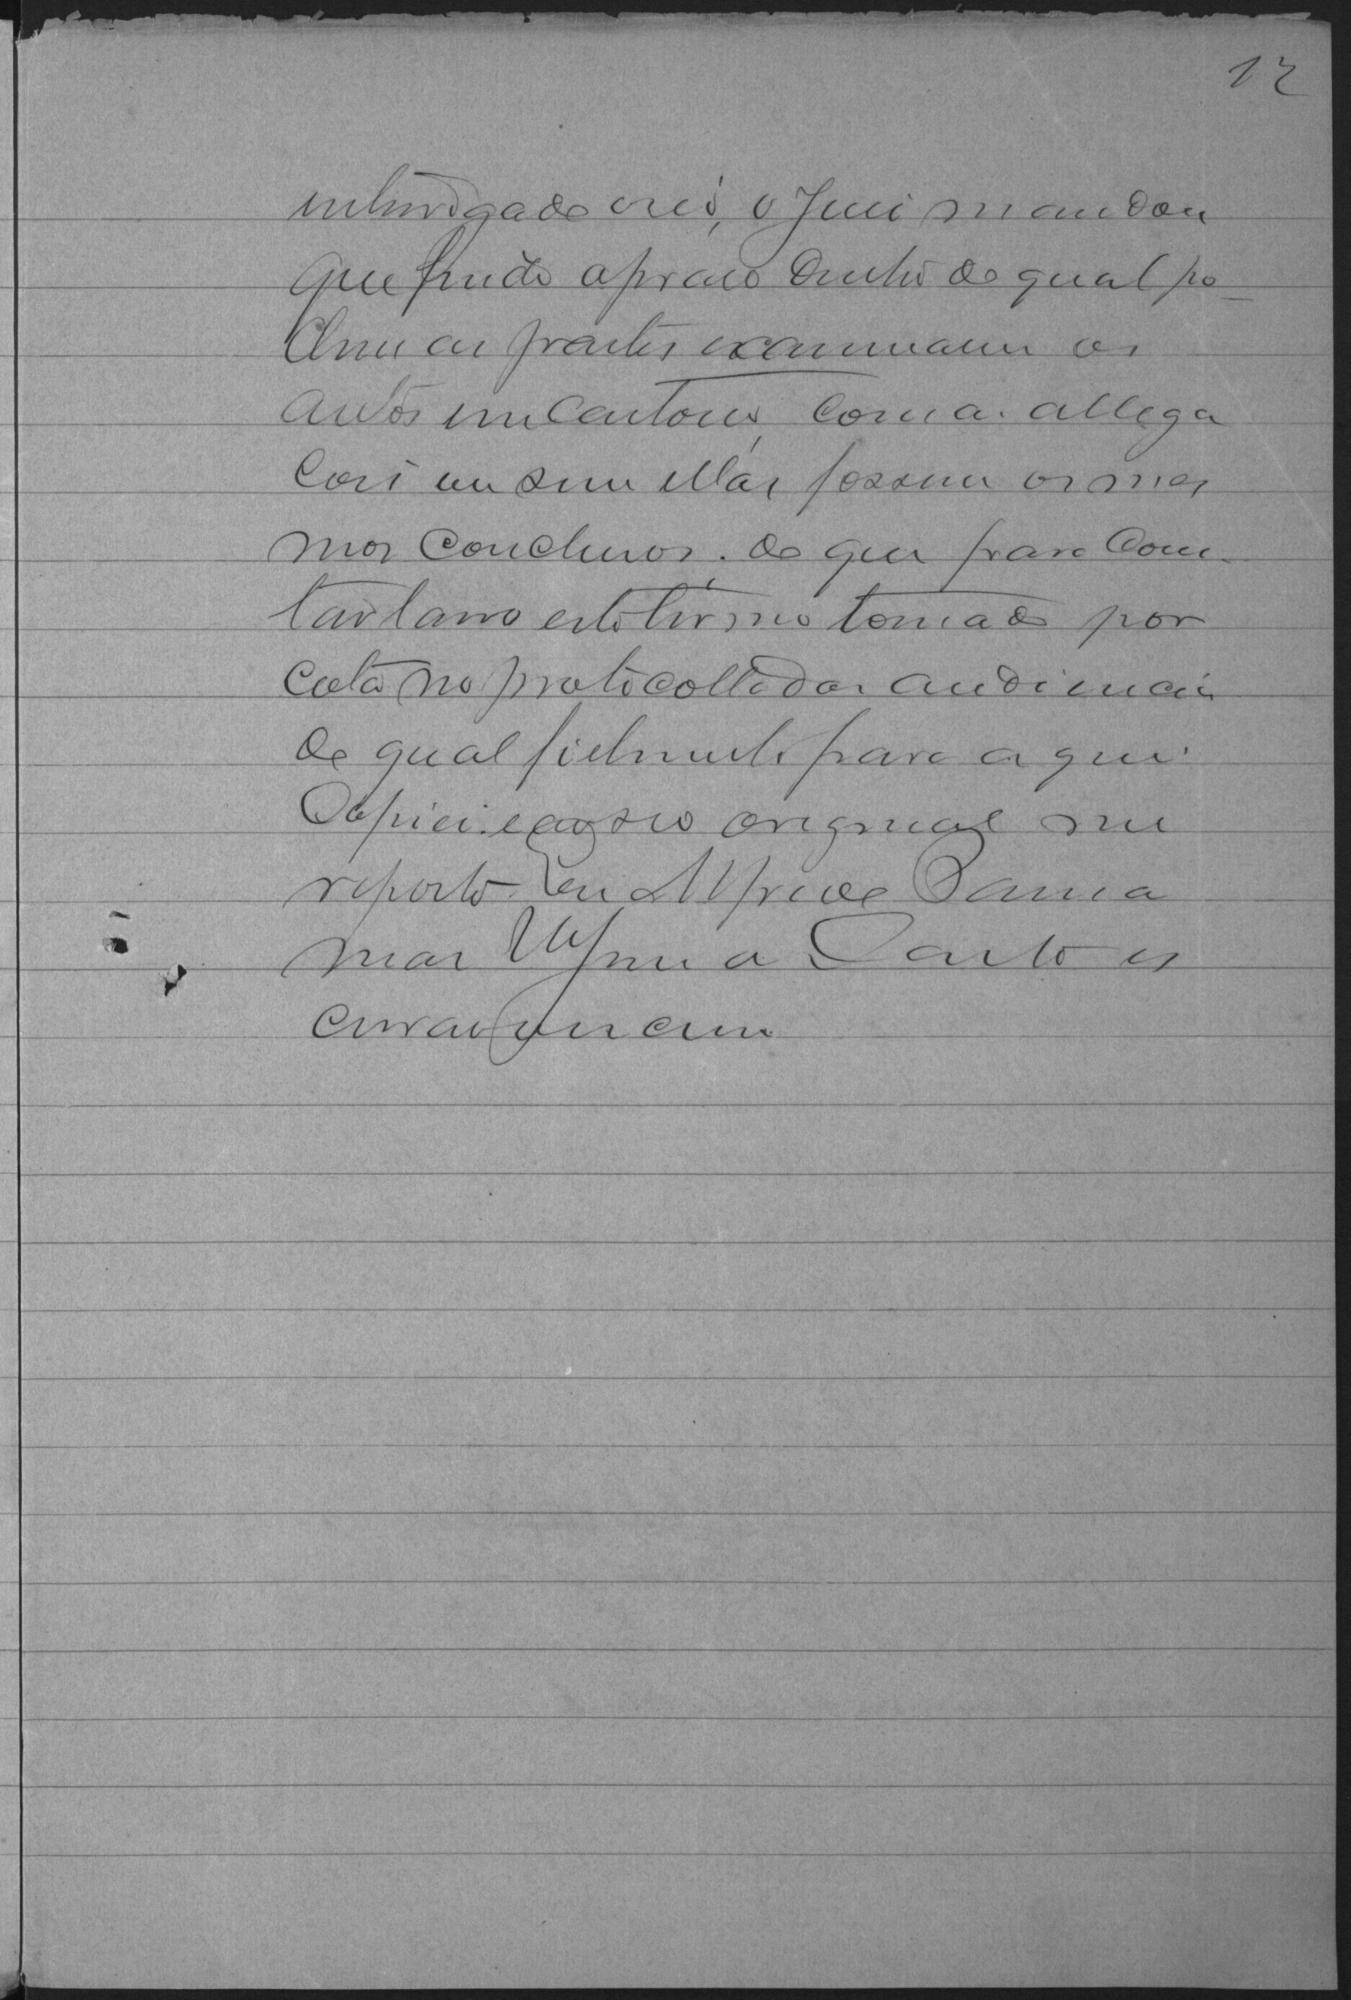 12
interrogado o reo, o Juiz mandou
que findo o praso dentro do qual po-
dem as partes examinarem os
autos em Cartorio, com as allega
ções ou sem ellas fossem os mes
mos conclusos. do que para Cons
tar lavro este termo tomado por
cota no protocollo das audiencias
do qual fielmente para aqui
copiei. e ao seo original me
reporto. Eu Alfredo
mar Santos es
crivão